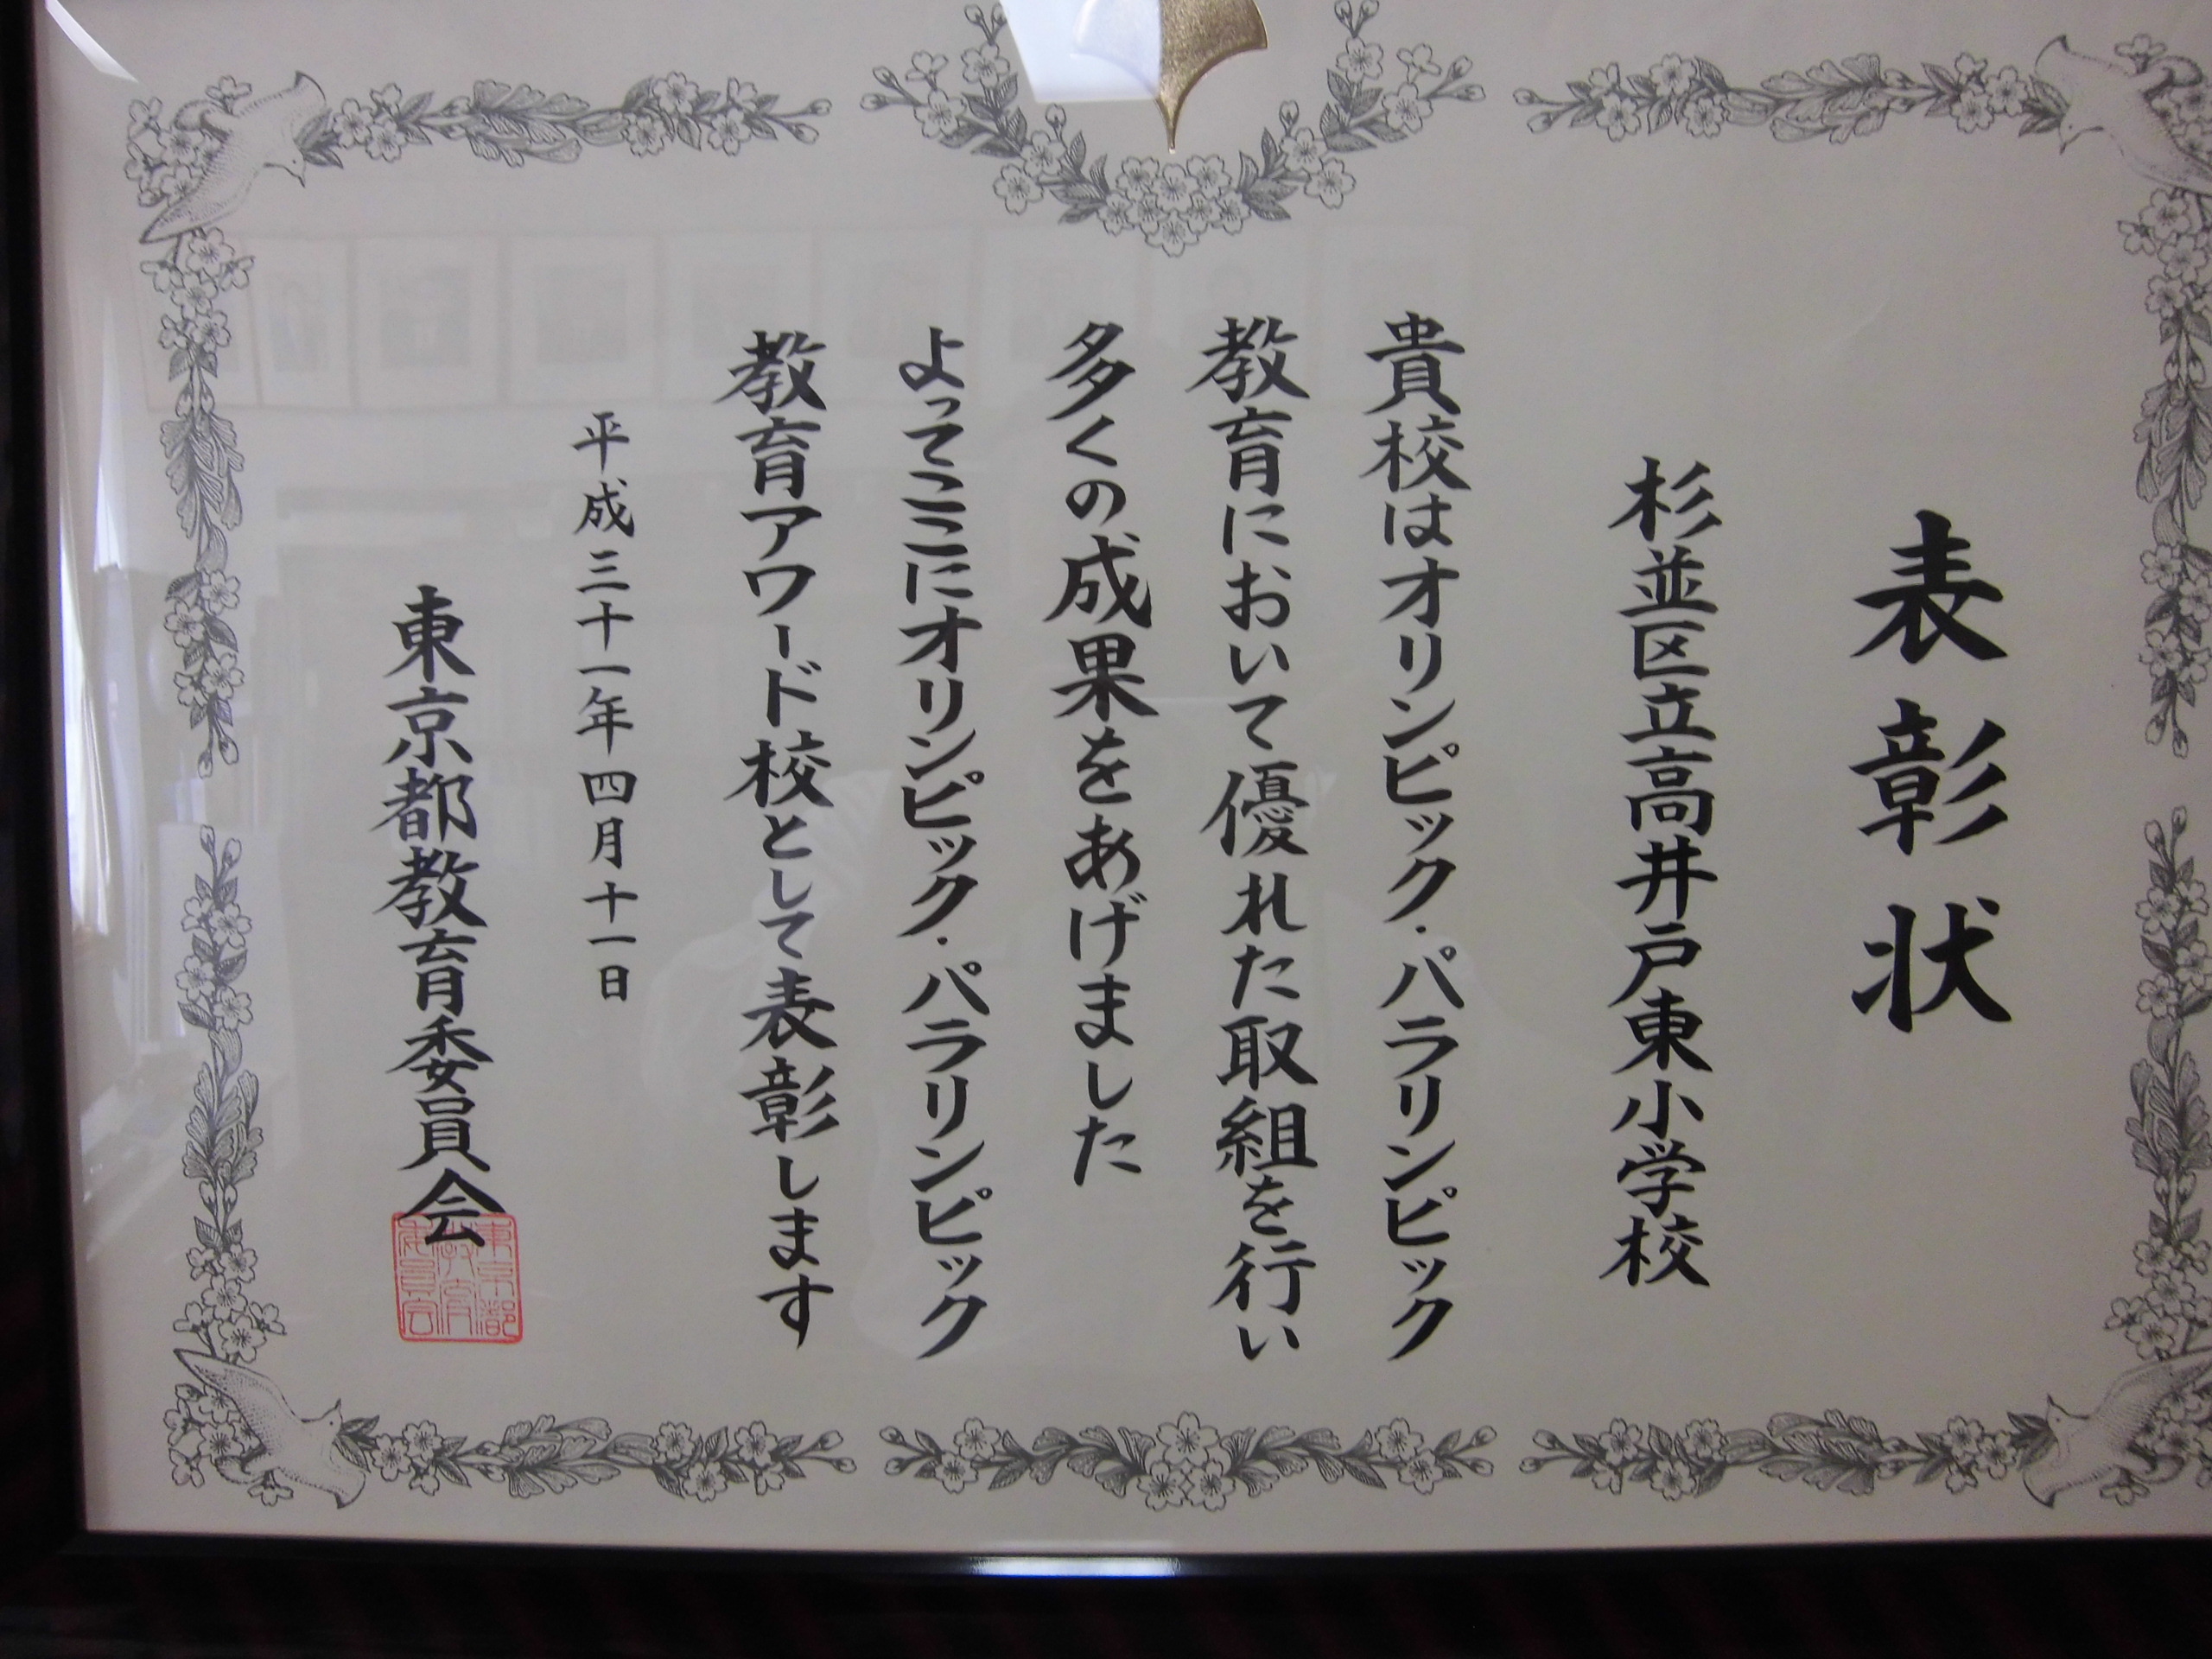 表彰状
杉並区立高井戸東小学校
貴校はオリンピック・パラリンピック
教育において優れた取組を行い
多くの成果をあげました
よってここにオリンピック・パラリンピック
教育アワード校として表彰します
平成三十一年四月十一日
東京都教育委員会
東京都
教育
委員会